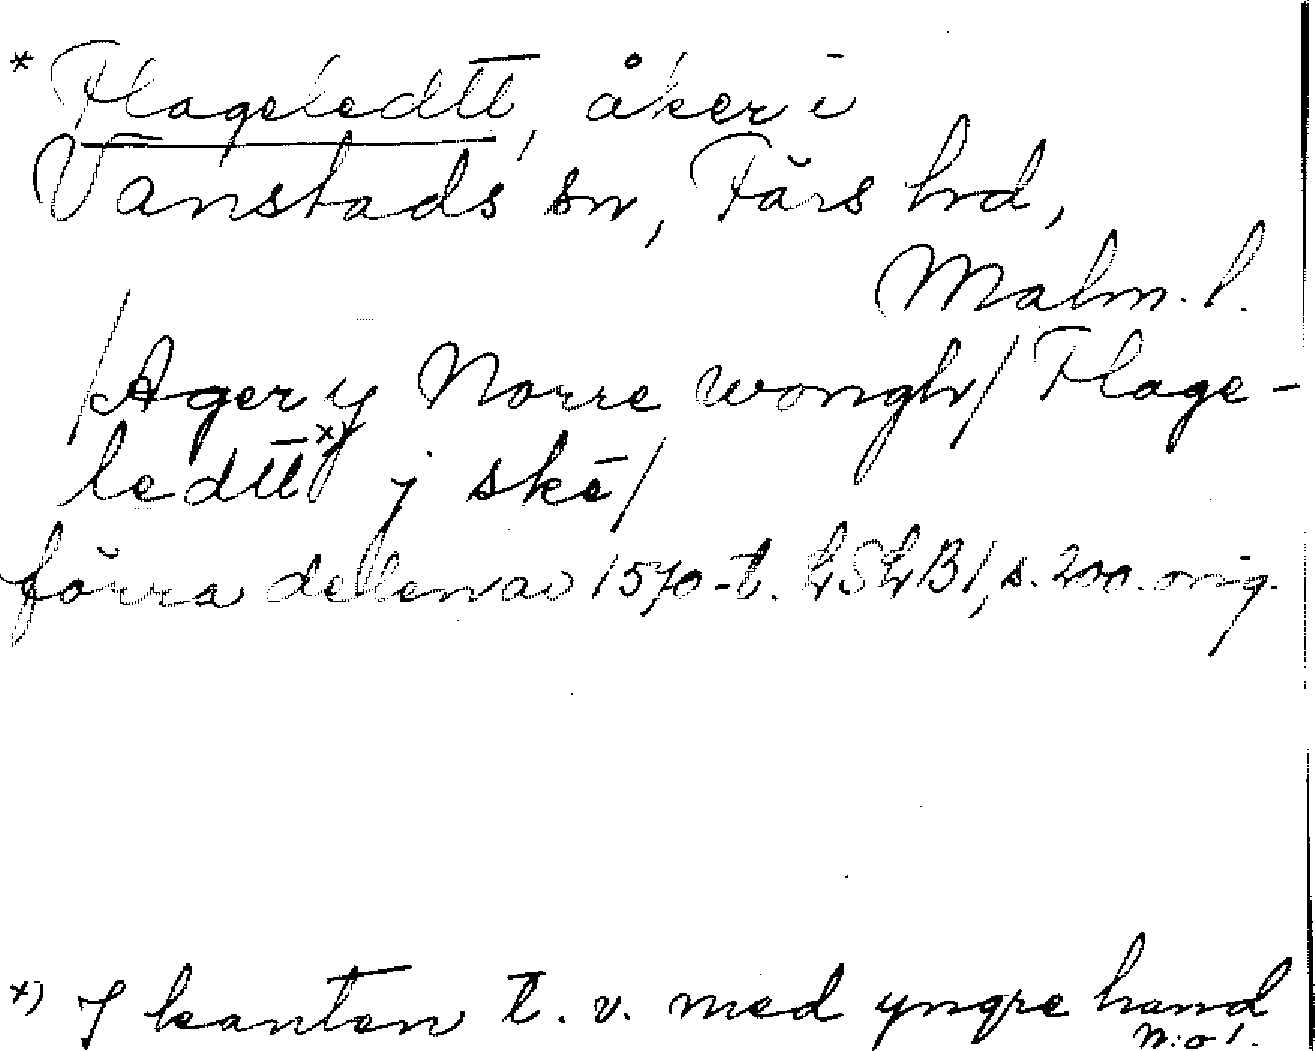 * Flageledtt, åker i
Vanstads sn, Färs hrd,
Malm. l.
/Ager y Norre wongh/ Flage-
ledtt x) j skē/
förra delen av 1570-t. LSLB1, s. 200. orig.
x) I kanten t. v. med yngre hand
N:o 1.